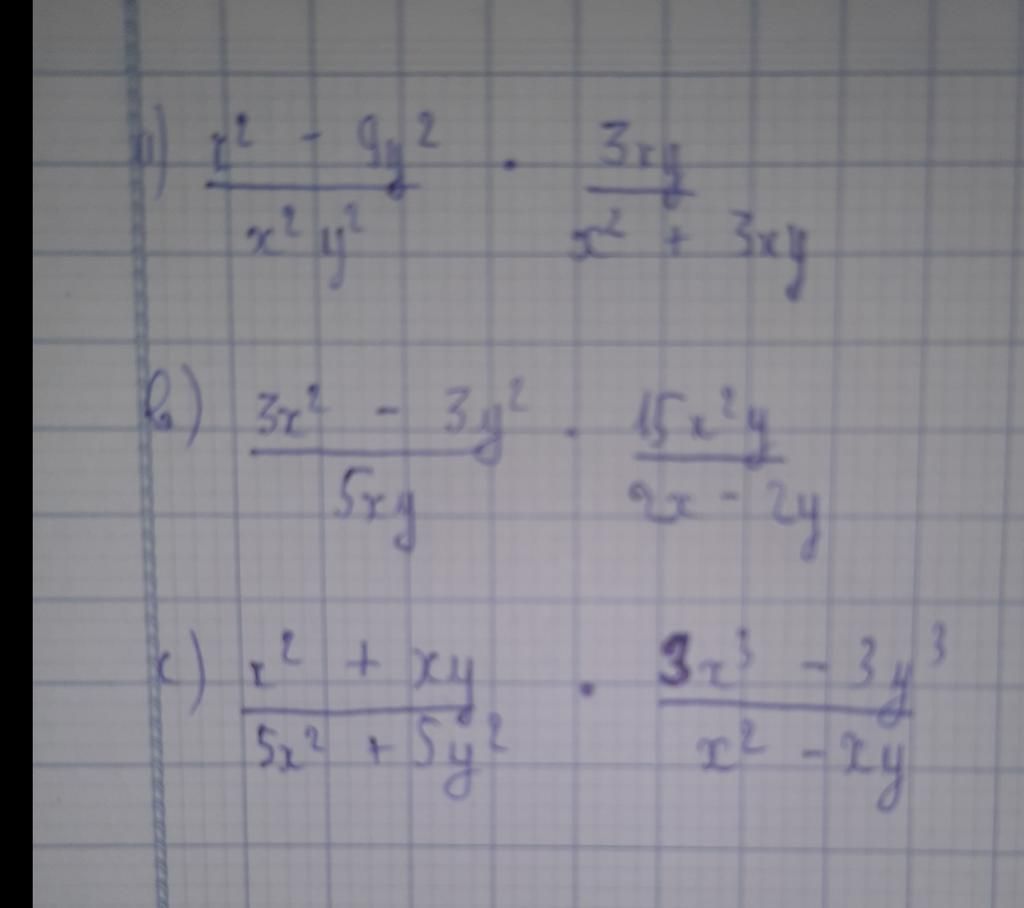 a) \frac{x^2 - 9y^2}{x^2 y^2} \cdot \frac{3xy}{x^2 + 3xy}
b) \frac{3x^2 - 3y^2}{5xy} \cdot \frac{15x^2y}{2x - 2y}
c) \frac{x^2 + xy}{5x^2 + 5y^2} \cdot \frac{3x^3 - 3y^3}{x^2 - xy}